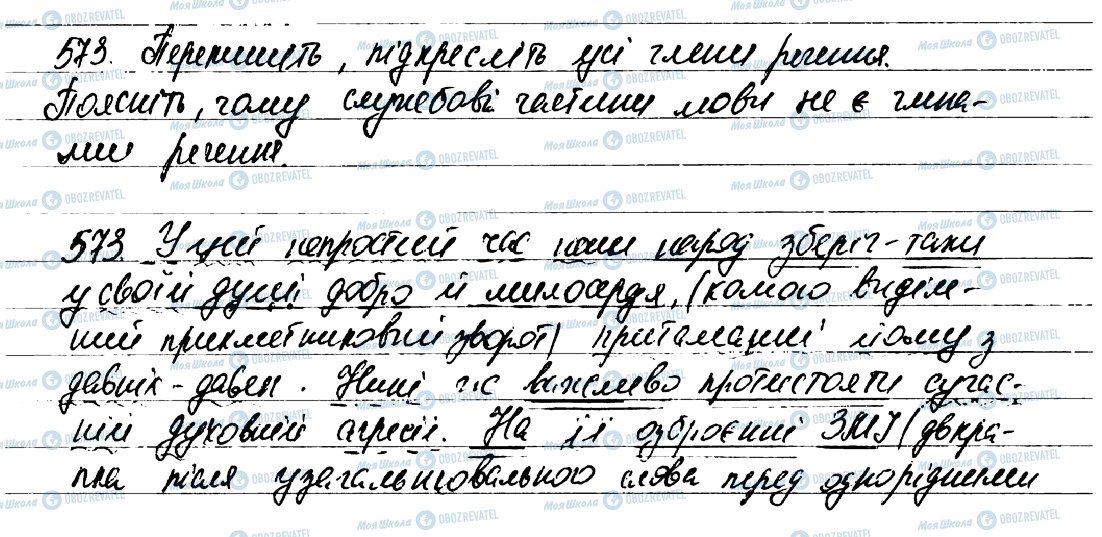 573. Перепишіть, підкресліть усі члени речення.
Поясніть, чому службові частини мови не є члена-
ми речення.
573 У цей непростий час наш народ зберіг-таки
у своїй душі добро й милосердя, (комою виділе-
ний прикметниковий зворот) притаманні йому з
давніх-давен. Нині час важливо протистояти сучас-
ній духовній агресії. На її озброєнні ЗМІ (двокра-
пка після узагальнювального слова перед однорідними